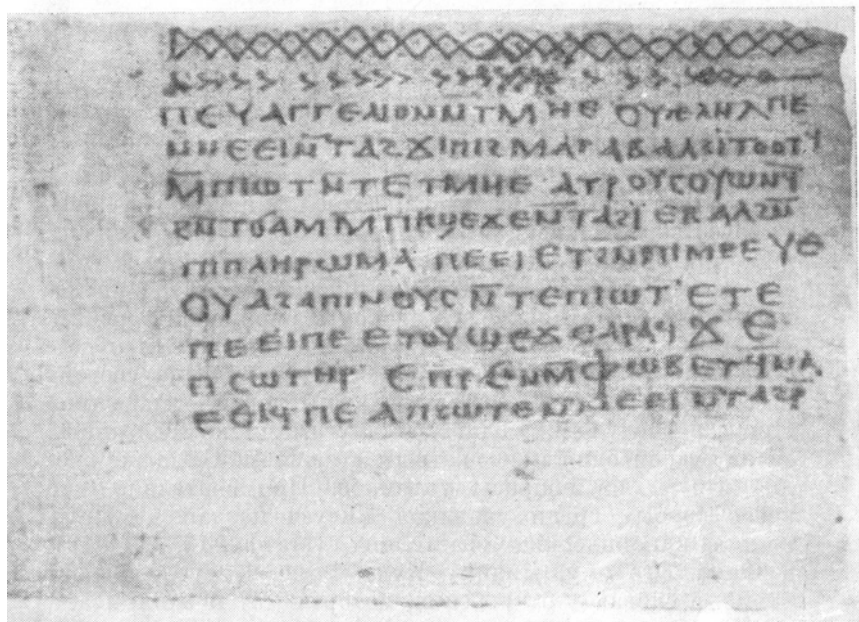 ⲡⲉⲩⲁⲅⲅⲉⲗⲓⲟⲛ ⲛ̄ⲧⲙⲏⲉ ⲟⲩⲧⲉⲗⲏⲗ ⲡⲉ
ⲛ̄ⲛⲉⲉⲓ ⲛ̄ⲧⲁϩϫⲓ ⲡⲓϩⲙⲁⲧ ⲁⲃⲁⲗ ϩⲓⲧⲟⲟⲧϥ
ⲙ̄ⲡⲓⲱⲧ ⲛ̄ⲧⲉ ⲧⲙⲏⲉ ⲁⲧⲣⲟⲩⲥⲟⲩⲱⲛϥ̄
ϩⲛ̄ ⲧϭⲁⲙ ⲙ̄ⲡⲓϣⲉϫⲉ ⲛ̄ⲧⲁϩⲓ̈ ⲉⲃⲁⲗ ϩⲛ̄
ⲡⲓⲡⲗⲏⲣⲱⲙⲁ ⲡⲉⲉⲓ ⲉⲧϩⲛ̄ ⲡⲓⲙⲉⲉⲩⲉ
ⲟⲩⲁϩⲁ ⲡⲓⲛⲟⲩⲥ ⲛ̄ⲧⲉ ⲡⲓⲱⲧ ⲉⲧⲉ
ⲡⲉⲉⲓ ⲡⲉ ⲉⲧⲟⲩϣⲉϫⲉ ⲁⲣⲁϥ ϫⲉ
ⲡⲥⲱⲧⲏⲣ ⲉⲡⲣⲉⲛ ⲙ̄ⲫⲱⲃ ⲉⲧϥ̄ⲛⲁ
ⲉⲉⲓϥ ⲡⲉ ⲁⲡⲥⲱⲧⲉ ⲛ̄ⲛⲉⲉⲓ ⲛ̄ⲧⲁϩⲣ̄